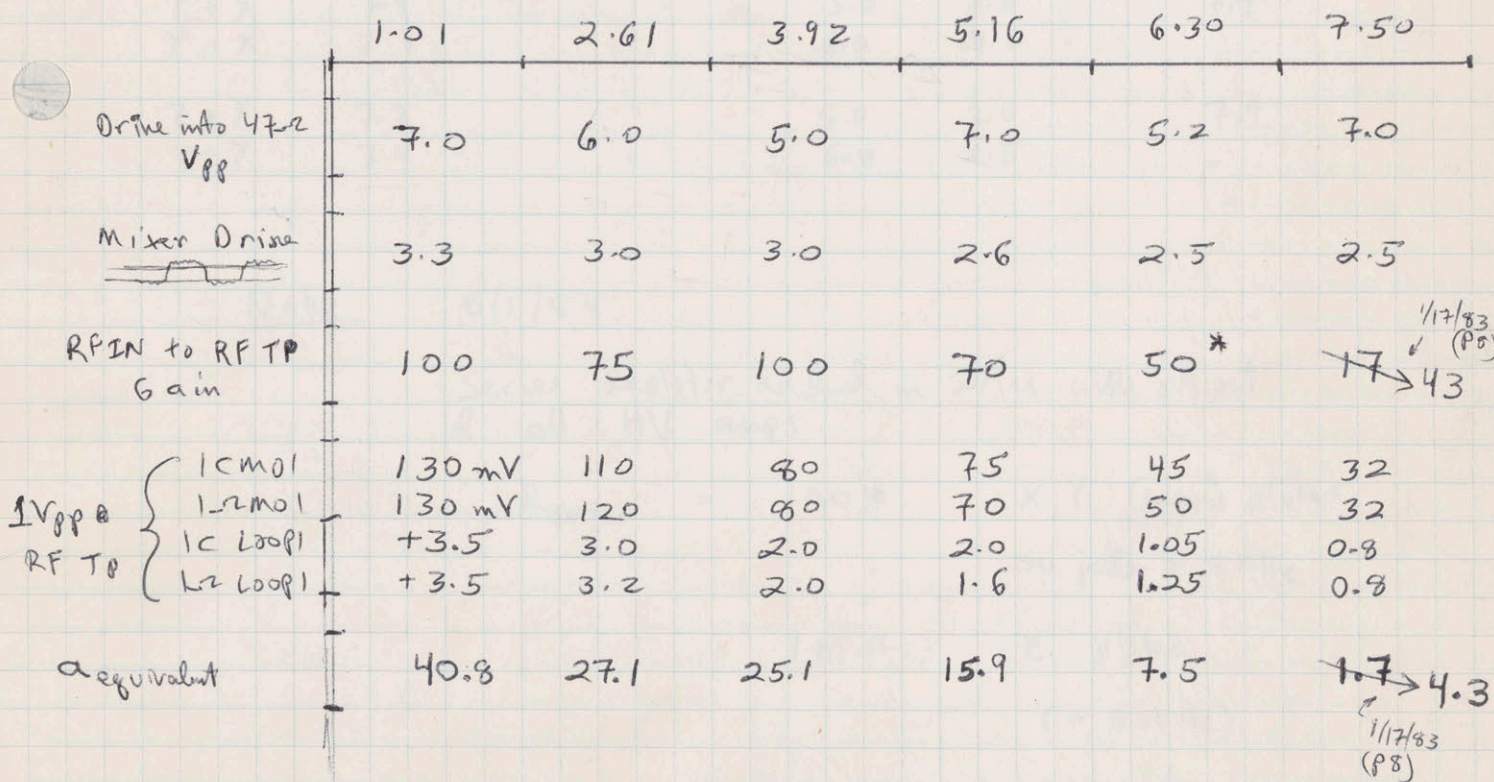 1.01 2.61 3.92 5.16 6.30 7.50
Drive into 47Ω 7.0 6.0 5.0 7.0 5.2 7.0
Vpp
Mixer Drive 3.3 3.0 3.0 2.6 2.5 2.5
1/17/83
(P8)
RFIN to RF TP 100 75 100 70 50* 17 → 43
Gain
ICMO1 130 mV 110 80 75 45 32
LΩMO1 130 mV 120 80 70 50 32
1Vpp @
IC LOOP1 +3.5 3.0 2.0 2.0 1.05 0.8
RF TP
LΩ LOOP1 +3.5 3.2 2.0 1.6 1.25 0.8
a equivalent 40.8 27.1 25.1 15.9 7.5 1.7 → 4.3
1/17/83
(P8)